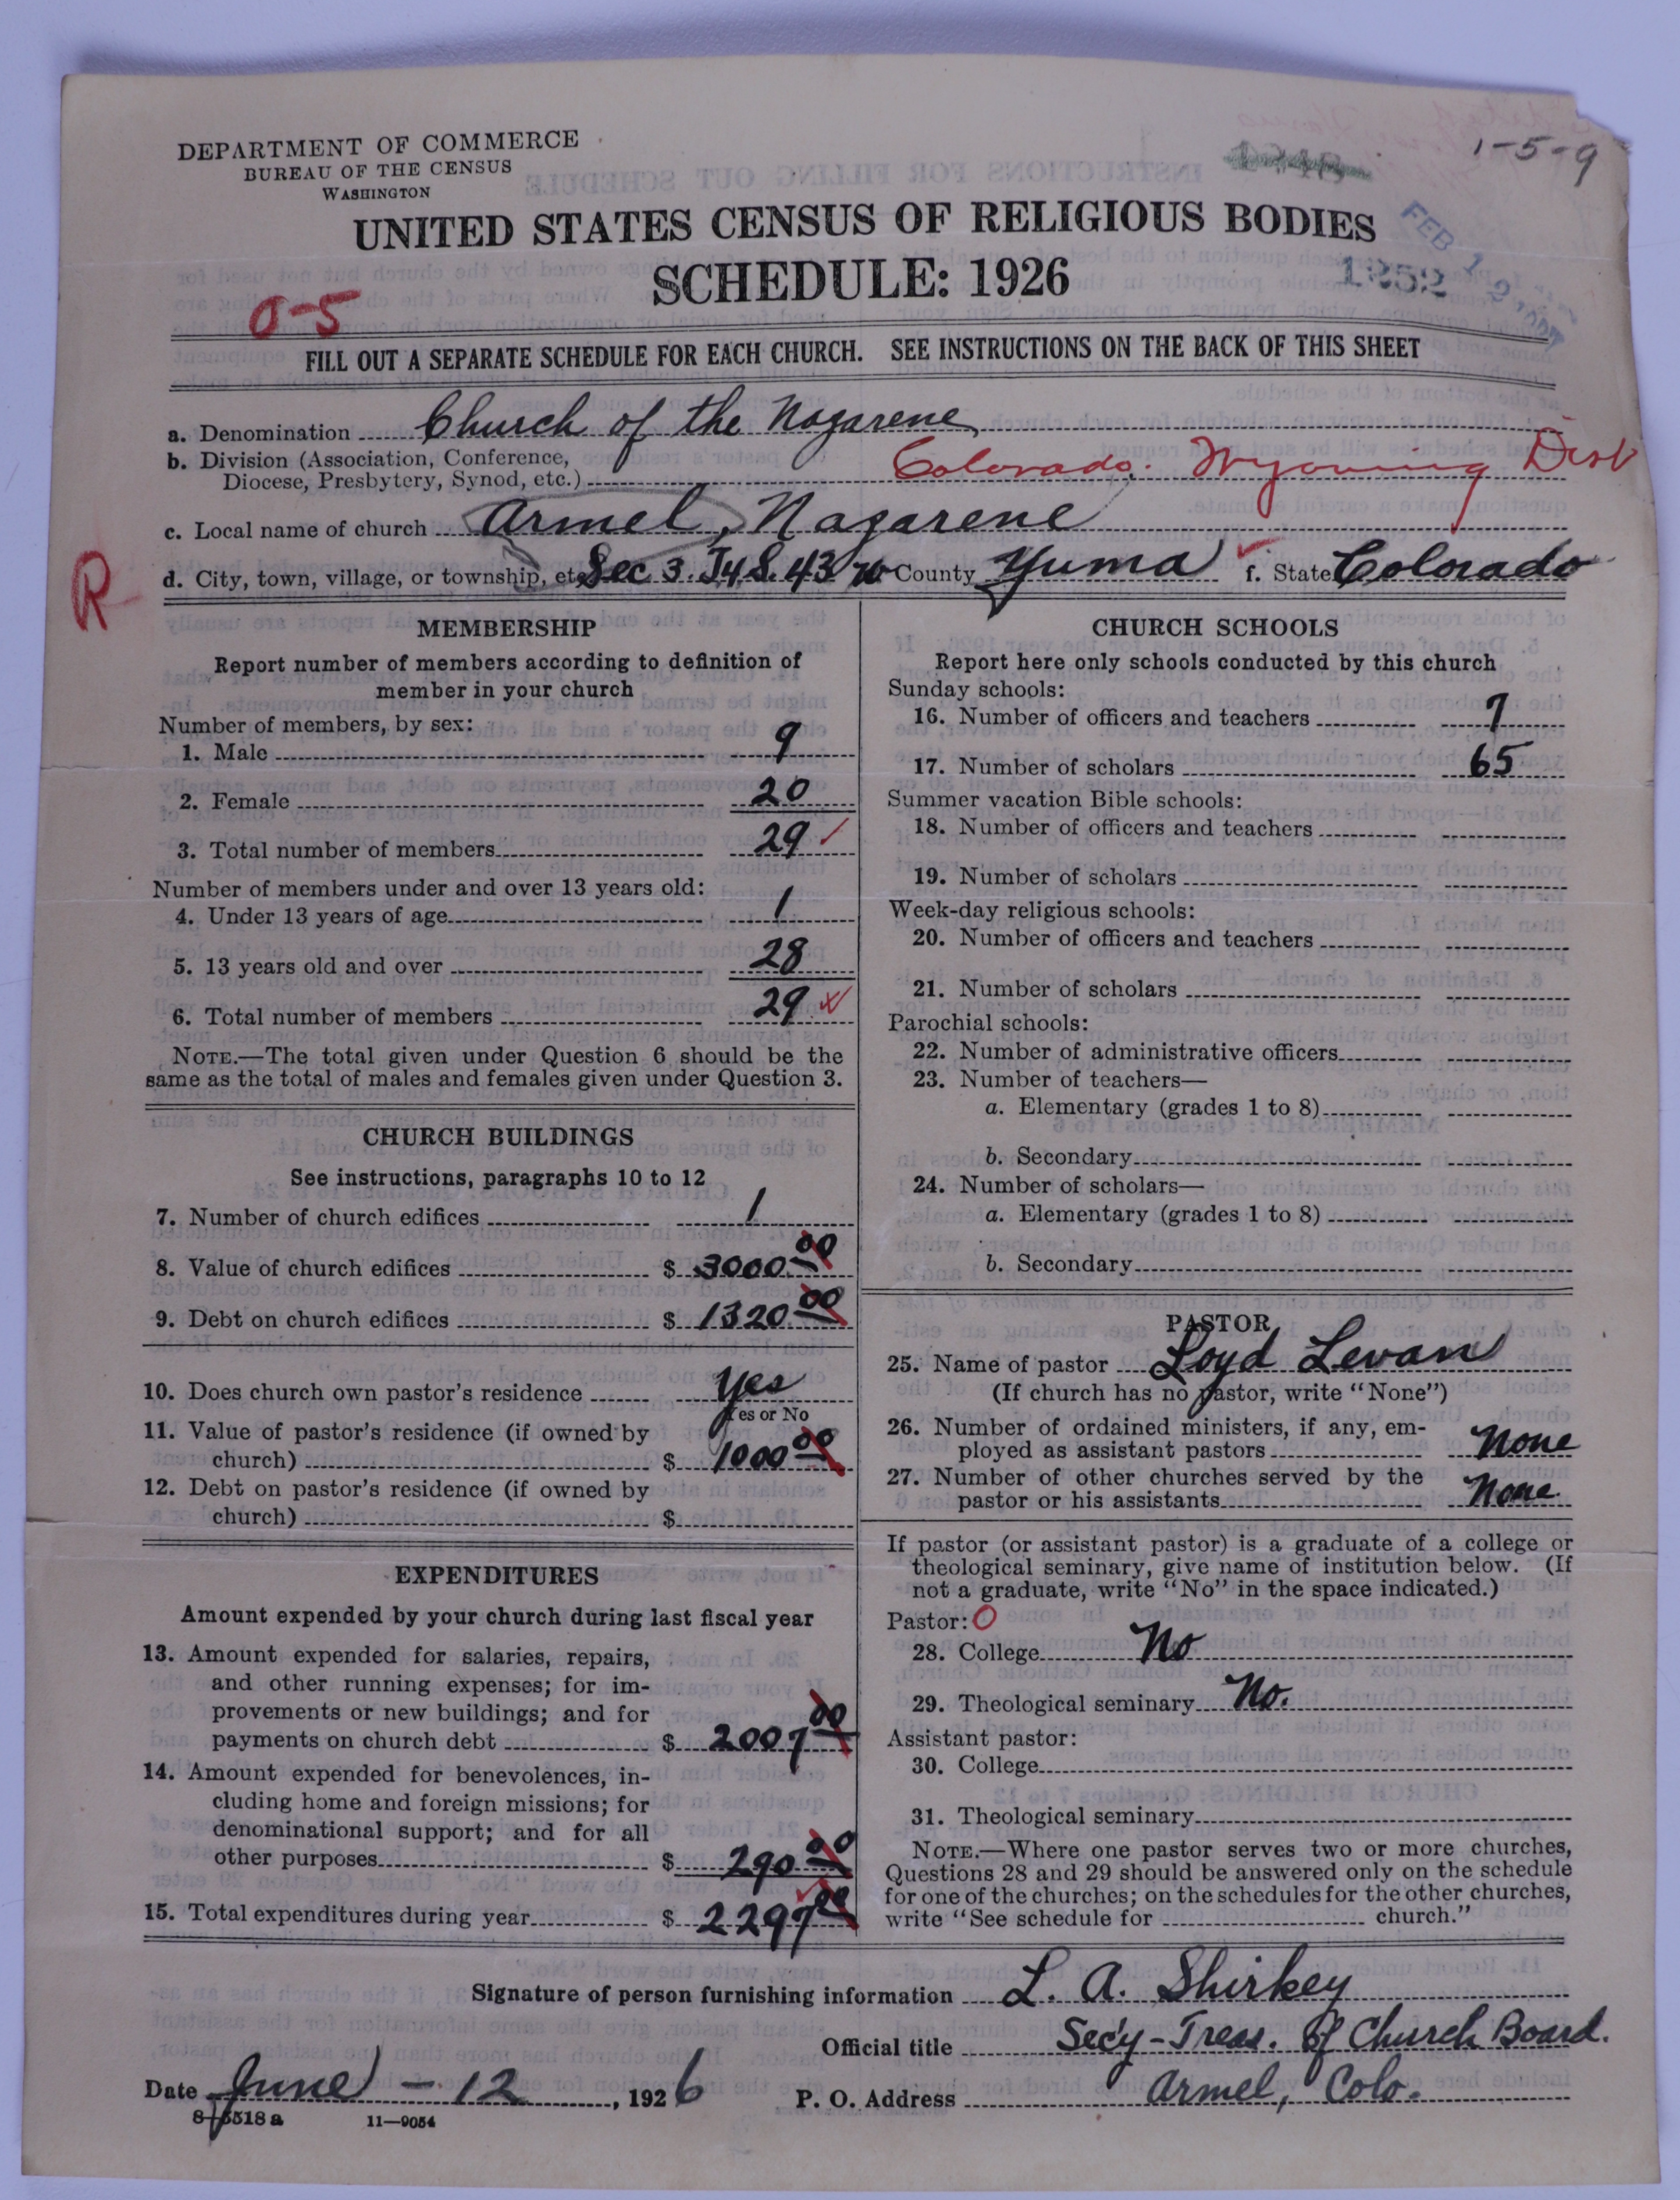 DEPARTMENT OF COMMERCE
BUREAU OF THE CENSUS
WASHINGTON
1-5-9
UNITED STATES CENSUS OF RELIGIOUS BODIES
SCHEDULE: 1926
FEB 12
1252
0-5
FILL OUT A SEPARATE SCHEDULE FOR EACH CHURCH. SEE INSTRUCTIONS ON THE BACK OF THIS SHEET
a. Denomination Church of the Nazarene
b. Division (Association, Conference,
Diocese, Presbytery, Synod, etc.) Colorado. Wyoming Dist
c. Local name of church Armel, Nazarene
d. City, town, village, or township, etc. Sec 3. T4 S. 43 W County Yuma f. State Colorado
R
MEMBERSHIP
Report number of members according to definition of
member in your church
Number of members, by sex:
1. Male 9
2. Female 20
3. Total number of members 29
Number of members under and over 13 years old:
4. Under 13 years of age 1
5. 13 years old and over 28
6. Total number of members 29
NOTE.—The total given under Question 6 should be the
same as the total of males and females given under Question 3.
CHURCH BUILDINGS
See instructions, paragraphs 10 to 12
7. Number of church edifices 1
8. Value of church edifices $ 3000.00
9. Debt on church edifices $ 1320.00
10. Does church own pastor's residence Yes
Yes or No
11. Value of pastor's residence (if owned by
church) $ 1000.00
12. Debt on pastor's residence (if owned by
church) $
EXPENDITURES
Amount expended by your church during last fiscal year
13. Amount expended for salaries, repairs,
and other running expenses; for im-
provements or new buildings; and for
payments on church debt $ 2007.00
14. Amount expended for benevolences, in-
cluding home and foreign missions; for
denominational support; and for all
other purposes $ 290.00
15. Total expenditures during year $ 2297.00
CHURCH SCHOOLS
Report here only schools conducted by this church
Sunday schools:
16. Number of officers and teachers 7
17. Number of scholars 65
Summer vacation Bible schools:
18. Number of officers and teachers
19. Number of scholars
Week-day religious schools:
20. Number of officers and teachers
21. Number of scholars
Parochial schools:
22. Number of administrative officers
23. Number of teachers—
a. Elementary (grades 1 to 8)
b. Secondary
24. Number of scholars—
a. Elementary (grades 1 to 8)
b. Secondary
PASTOR
25. Name of pastor Loyd Levan
(If church has no pastor, write "None")
26. Number of ordained ministers, if any, em-
ployed as assistant pastors None
27. Number of other churches served by the
pastor or his assistants None
If pastor (or assistant pastor) is a graduate of a college or
theological seminary, give name of institution below. (If
not a graduate, write "No" in the space indicated.)
Pastor: O
28. College No
29. Theological seminary No.
Assistant pastor:
30. College
31. Theological seminary
NOTE.—Where one pastor serves two or more churches,
Questions 28 and 29 should be answered only on the schedule
for one of the churches; on the schedules for the other churches,
write "See schedule for church."
Signature of person furnishing information L. A. Shirkey
Official title Sec'y-Treas. of Church Board.
Date June - 12, 1926 P. O. Address Armel, Colo.
8-5518a 11-9054